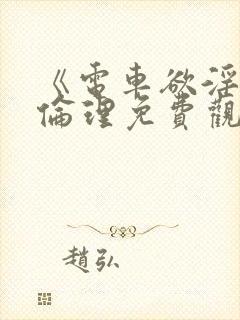 《電車欲淫
倫理免費觀
趙弘